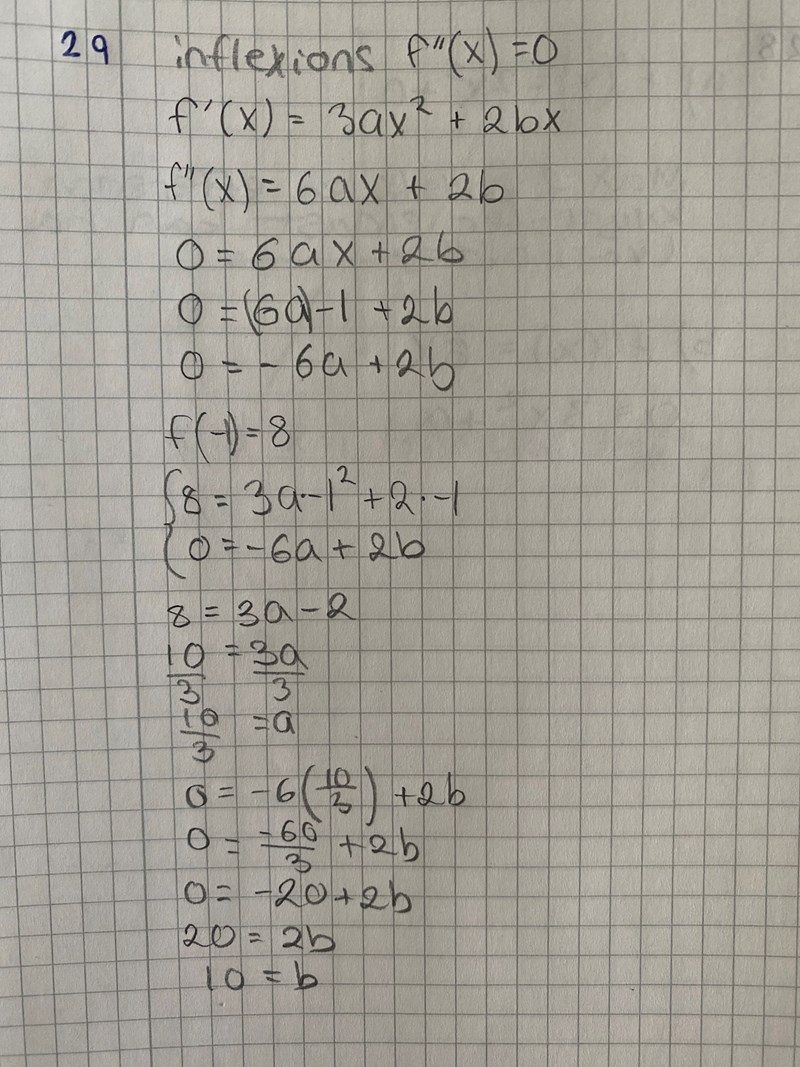 29 inflexions f''(x) = 0
f'(x) = 3ax² + 2bx
f''(x) = 6ax + 2b
0 = 6ax + 2b
0 = (6a)-1 + 2b
0 = - 6a + 2b
f(-1) = 8
{8 = 3a·-1² + 2·-1
{0 = -6a + 2b
8 = 3a - 2
10/3 = 3a/3
10/3 = a
0 = -6(10/3) + 2b
0 = -60/3 + 2b
0 = -20 + 2b
20 = 2b
10 = b